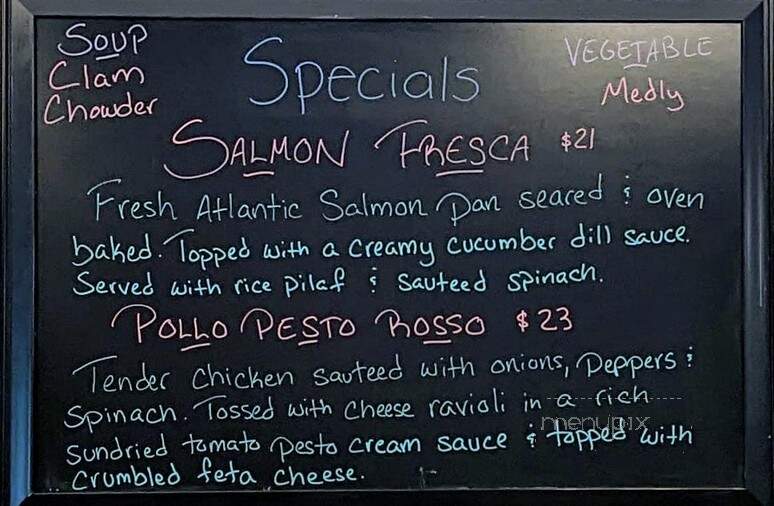 SOUP
Clam
Chowder
Specials
VEGETABLE
Medly
SALMON FRESCA $21
Fresh Atlantic Salmon Pan seared & oven
baked. Topped with a creamy cucumber dill sauce.
Served with rice pilaf & sauteed spinach.
POLLO PESTO ROSSO $23
Tender chicken sauteed with onions, peppers &
spinach. Tossed with cheese ravioli in a rich
sundried tomato pesto cream sauce & topped with
crumbled feta cheese.
menupix